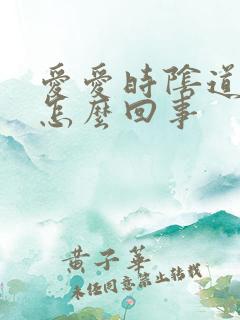 愛愛時陰道
怎麼回事
黃子華
未經同意禁止轉載